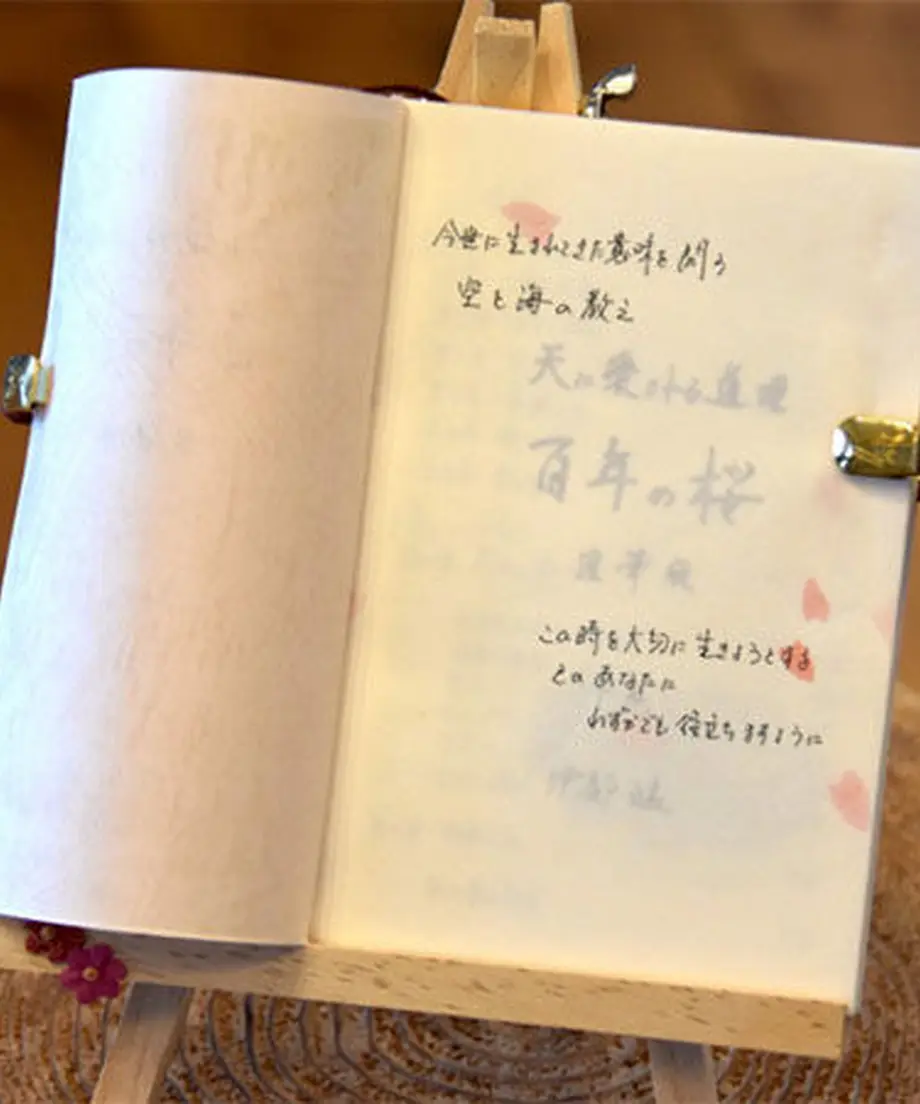 今世に生まれてきた意味を問う
空と海の教え
天に愛される道理
百年の桜
この時を大切に生きようとする
そのあなたに
わずかでも役立ちますように